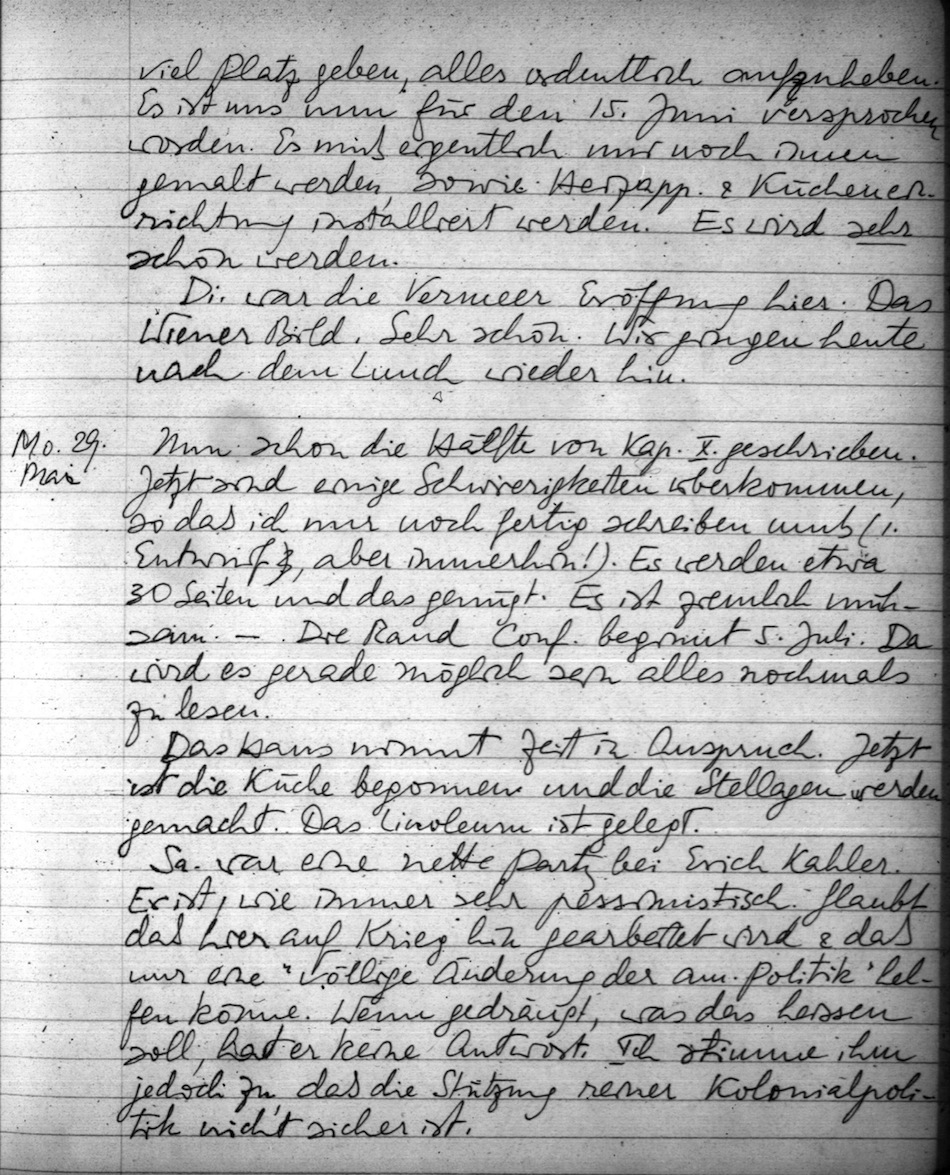 viel Platz geben, alles ordentlich aufzuheben.
Es ist uns nun für den 15. Juni versprochen
worden. Es muß eigentlich nur noch innen
gemalt werden, sowie Heizapp. & Küchenein-
richtung installiert werden. Es wird sehr
schön werden.
Di. war die Vermeer Eröffnung hier. Das
Wiener Bild. Sehr schön. Wir gingen heute
nach dem Lunch wieder hin.
Mo. 29.
Mai
Nun schon die Hälfte von Kap. X. geschrieben.
Jetzt sind einige Schwierigkeiten überkommen,
so daß ich nur noch fertig schreiben muß (1.
Entwurf, aber immerhin!). Es werden etwa
30 Seiten und das genügt. Es ist ziemlich müh-
sam. — Die Rand Conf. beginnt 5. Juli. Da
wird es gerade möglich sein alles nochmals
zu lesen.
Das Haus nimmt Zeit in Anspruch. Jetzt
ist die Küche begonnen und die Stellagen werden
gemacht. Das Linoleum ist gelegt.
Sa. war eine nette Party bei Erich Kahler.
Er ist, wie immer sehr pessimistisch. Glaubt
daß hier auf Krieg hin gearbeitet wird & daß
nur eine "völlige Änderung der am. Politik" hel-
fen könne. Wenn gedrängt, was das heissen
soll, hat er keine Antwort. Ich stimme ihm
jedoch zu daß die Stützung reiner Kolonialpoli-
tik nicht sicher ist.